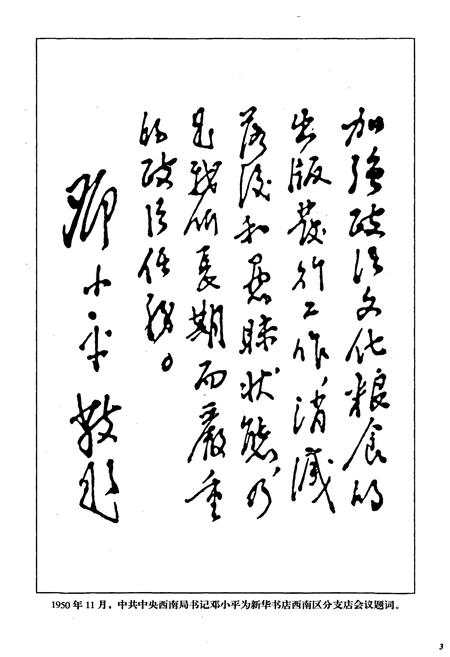 加強政治文化粮食的
出版發行工作,消滅
落後和愚昧狀態,乃
是我們長期而嚴重
的政治任務。
鄧小平 敬題
1950年11月，中共中央西南局书记邓小平为新华书店西南区分支店会议题词。
3